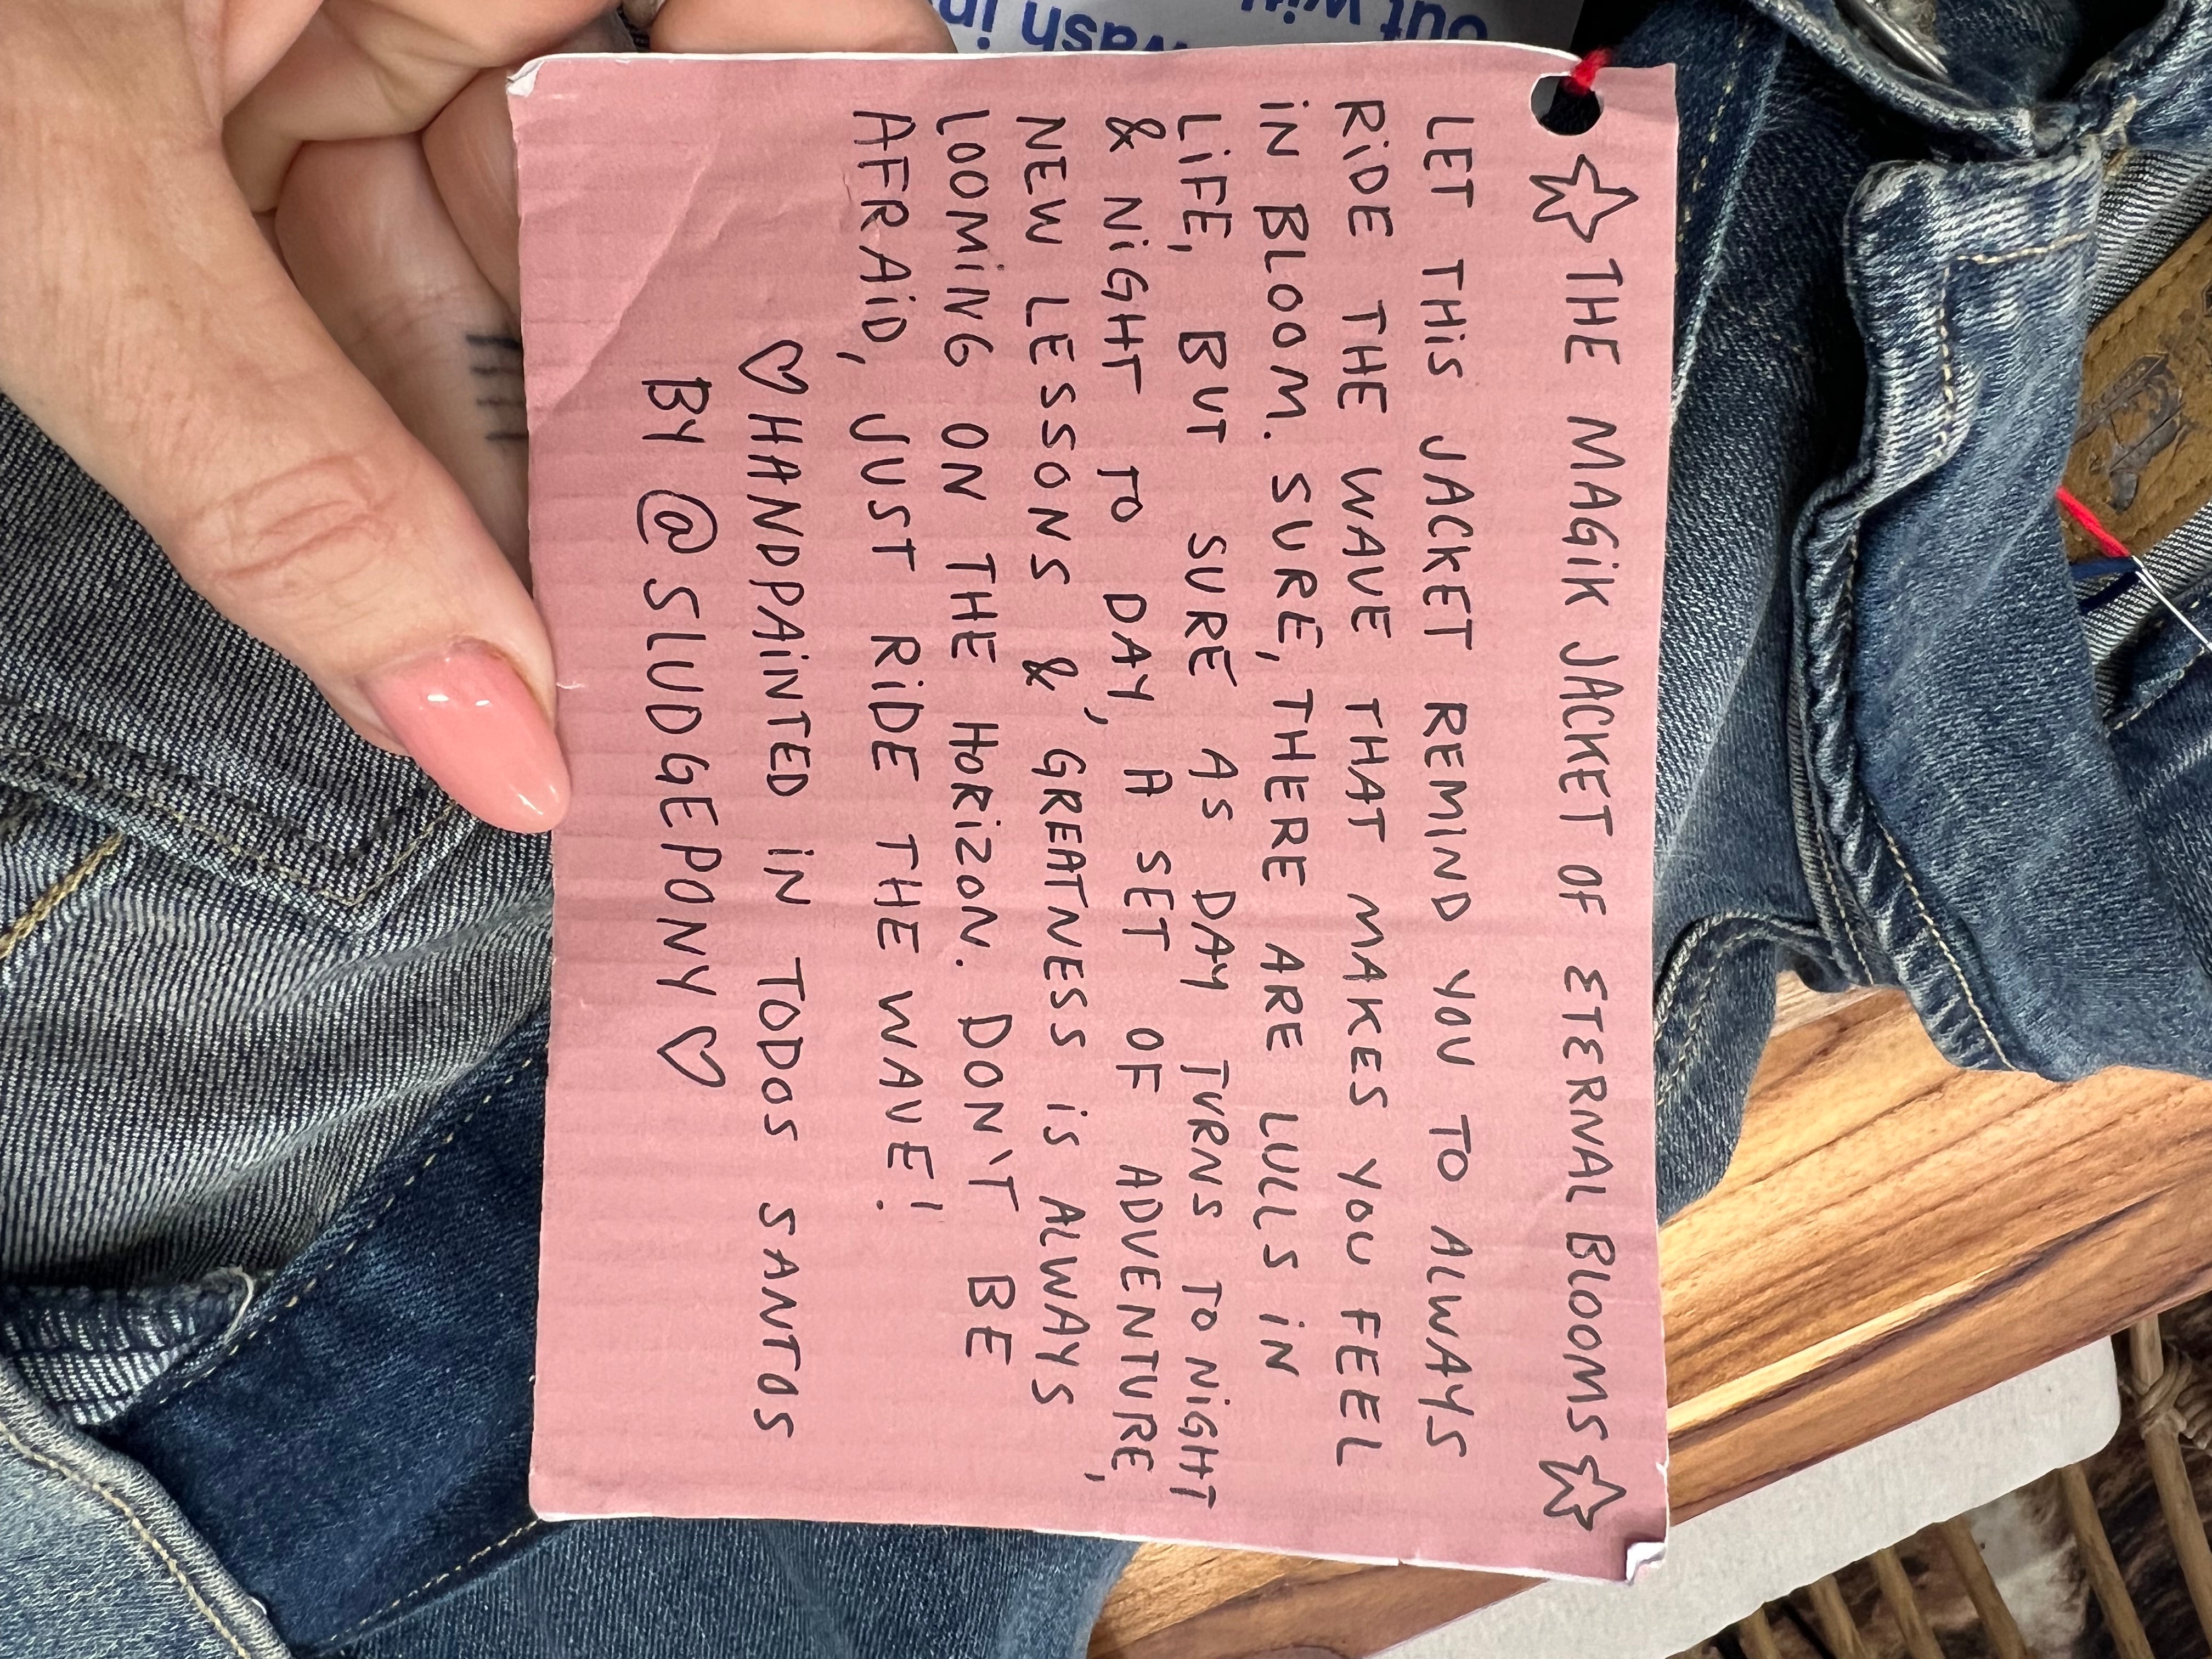 THE MAGiK JACKET OF ETERNAL BLOOMS
LET THiS JACKET REMIND YOU TO ALWAYS
RiDE THE WAVE THAT MAKES YOU FEEL
iN BLOOM. SURE, THERE ARE LULLS iN
LiFE, BUT SURE AS DAY TURNS TO NiGHT
& NiGHT TO DAY, A SET OF ADVENTURE,
NEW LESSONS & GREATNESS iS ALWAYS
LOOMiNG ON THE HORiZON. DON'T BE
AFRAiD, JUST RiDE THE WAVE!
♡HANDPAiNTED iN TODOS SANTOS
BY @SLUDGEPONY ♡